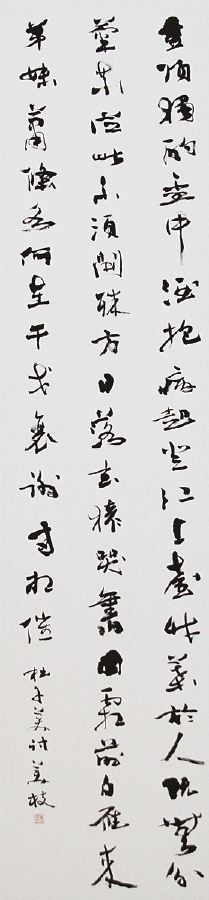 重陽獨酌盃中酒抱病起登江上臺竹葉於人既無分
菊花從此不須開殊方日落玄猿哭舊國霜前白雁來
弟妹蕭條各何在干戈衰謝兩相催 杜子美詩 美枝